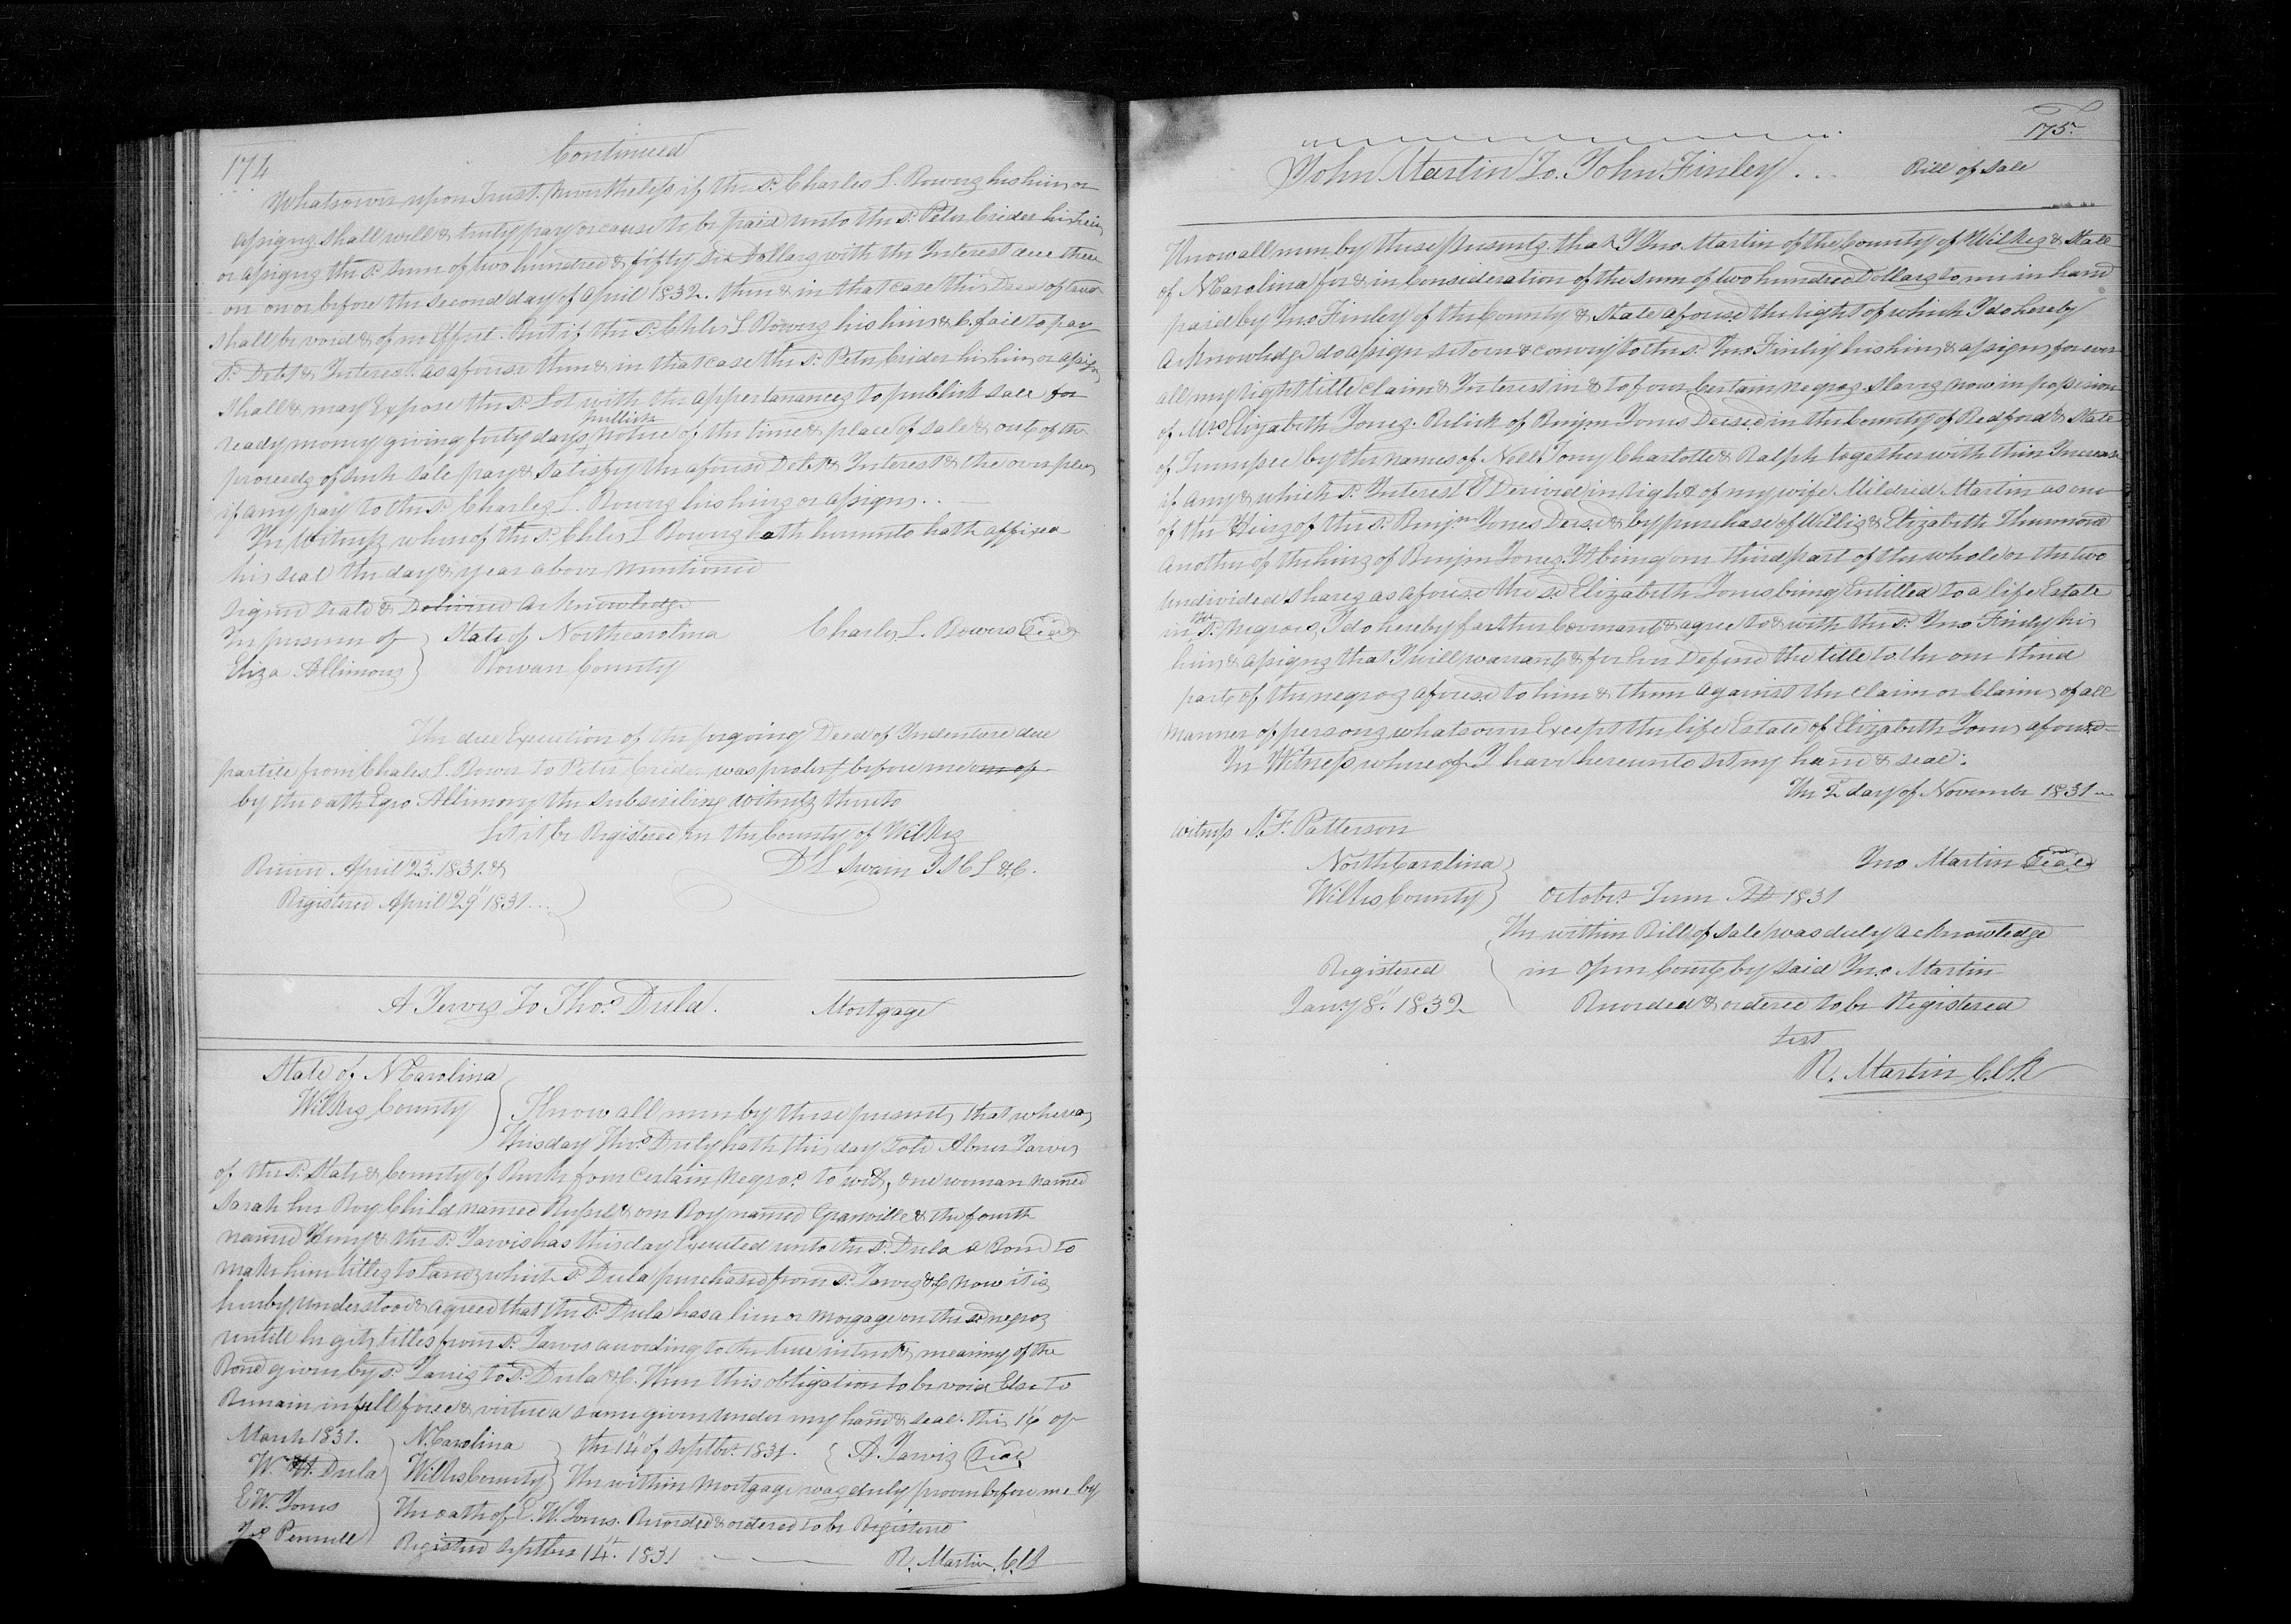 174
Continued
Whatsoever upon Trust. Nevertheless if the sd. Charles L. Bowers his heirs or
assigns shall will & truly pay or cause to be paid unto the sd. Peter Crider his heirs
or assigns the sd. sum of two hundred & fifty six Dollars with the Interest due there
on on or before the second day of April 1832. then & in that case this Deed of
shall be void & of no effect. But if the sd. Chles L Bowers his heirs &C. fail to pay
sd. Debt & Interest. as aforesd then & in that case the sd. Peter Crider his heirs or assigns
shall & may Expose the sd. Lot with the appertanances to publick sale for
ready money giving forty days publick notice of the time & place of sale & out of the
proceeds of such sale pay & satisfy the aforesd Debt & Interest & the overplus
if any pay to the sd. Charles L. Bowers his heirs or assigns..
In Witness whereof the sd. Chles L Bowers hath hereunto hath affixed
his seal the day & year above mentioned
signed seald & Delivered acknowledge
In presenc of } State of Northcarolina Charles L. Bowers Seal
Eliza Allimong } Rowan County
The due Execution of the forgoing Deed of Indenture due
partice from Chales L. Bower to Peter Crider was proved before me on op
by the oath Allimong the subscribing witness thereto
Let it be Registered in the County of Wilkes
Receved April 23. 1831. & D L Swain J S C L & C.
Registered April 29th 1831...
A Jervis To Thos. Dula. Mortgage
State of N Carolina
Wilkes County } Know all men by these presents that whereas
this day Thos. Duly hath this day sold Abner Jarvis
of the sd. State & County of Burke four certain Negros. to wit, one woman named
Sarah her Boy Child named Russel & one Boy named Granville & the fourth
named Henry & the sd. Jarvis has this day Executed unto the sd. Dula a Bond to
make him titles to Land which sd. Dula purchased from sd. Jarvis &C now it is
hereby understood & agreed that the sd. Dula has a lien or Morgage on the sd negros
untill he gits titles from sd. Jarvis according to the true intent & meaning of the
Bond given by sd. Jarvis to sd. Dula &C. then this obligation to be void Else to
Remain in full force & virtue a same given under my hand & seal. this 16 of
March 1831. } N. Carolina } the 14th of Septbr. 1831. { A. Jarvis Seal
W. H. Dula } Wilkes County } The within Mortgage was duly proven before me by
E W. Jones } the oath of E. W. Jones. Recorded & ordered to be Registered
Jos Pennell } Registred Septber 14th. 1831 R. Martin, ClK
175.
John Martin To. John Finley... Bill of Sale
Know all men by these presents. that I Jno. Martin of the County of Wilkes & State
of N Carolina for & in Consideration of the sum of two hundred Dollars to me in hand
paid by Jno. Finley of the County & State aforesd. the right of which I do hereby
acknowledge do assign set over & convey to the sd. Jno. Finley his heirs & assigns forever
all my right title claim & Interest in & to four Certain negros slaves now in possession
of Mrs Elizabeth Jones. Relick of Benjn. Jones Decsed in the County of Bedford & State
of Tennessee by the names of Nell Tony Charlotte & Ralph together with their Increase
if any & which sd. Interest I Derived in right of my wife Mildred Martin as one
of the Heirs of the sd. Benjn. Jones Decsd. & by purchase of Willis & Elizabeth Thurmond
another of the heirs of Benjn Jones. It being one third part of the whole or the two
undivided shares as aforesd. the sd. Elizabeth Jones being Entitled to a life Estate
in the sd. Negroes, I do hereby farther Covenant & agree to & with the sd. Jno Finley his
heirs & assigns that I will warrant & for Ever Defend the title to the one third
part of the negros aforesd. to him & them against the claim or Claims of all
manner of persons whatsoever Except the life Estate of Elizabeth Jones aforesd.
In Witness where of I have hereunto set my hand & seal.
The 2nd day of November 1831
witness S. F. Patterson
North Carolina } Jno Martin Seal
Wilkes County } October Term AD 1831
The within Bill of Sale was duly acknowledge
Registered { in open Court by said Jno. Martin
Jany 8th. 1832 Recorded & ordered to be Registered
Test
R. Martin ClK